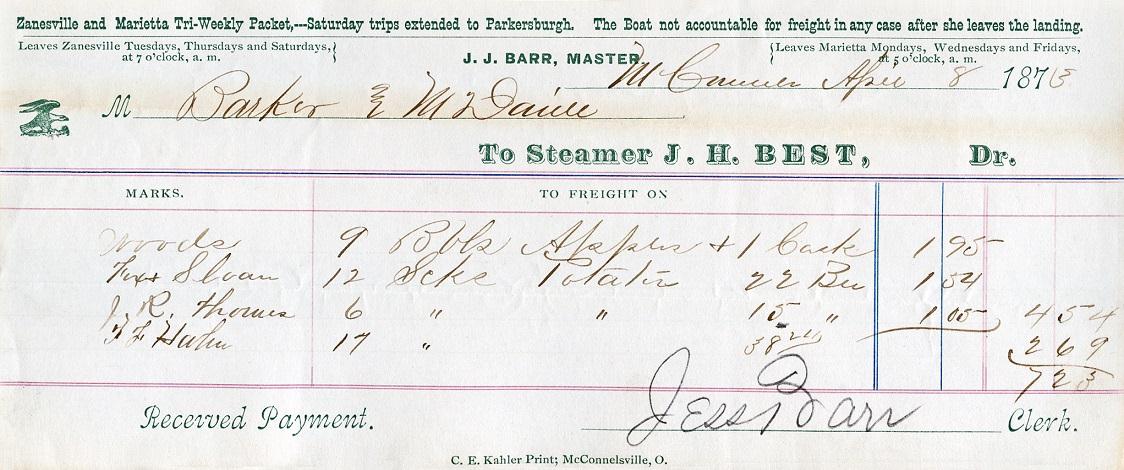 Zanesville and Marietta Tri-Weekly Packet,---Saturday trips extended to Parkersburgh. The Boat not accountable for freight in any case after she leaves the landing.
Leaves Zanesville Tuesdays, Thursdays and Saturdays, at 7 o'clock, a. m.
J. J. BARR, MASTER.
Leaves Marietta Mondays, Wednesdays and Fridays, at 5 o'clock, a. m.
8 1873
M Barker &
To Steamer J. H. BEST, Dr.
MARKS. TO FREIGHT ON
Woods 9 Bbls Apples + 1 Cask 1 95
Sloan 12 Scks Potatoes 22 Bu 1 54
J. R. Thomes 6 " " 15 " 1 05 4 54
Hahn 17 " 38 2 69
7 23
Received Payment. Jess Barr Clerk.
C. E. Kahler Print; McConnelsville, O.